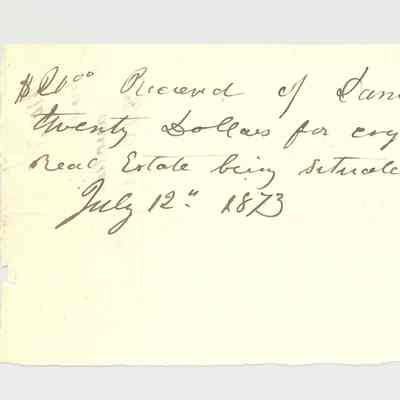 $20.00 Received of
twenty Dollars for
Real Estate being situate
July 12" 1873